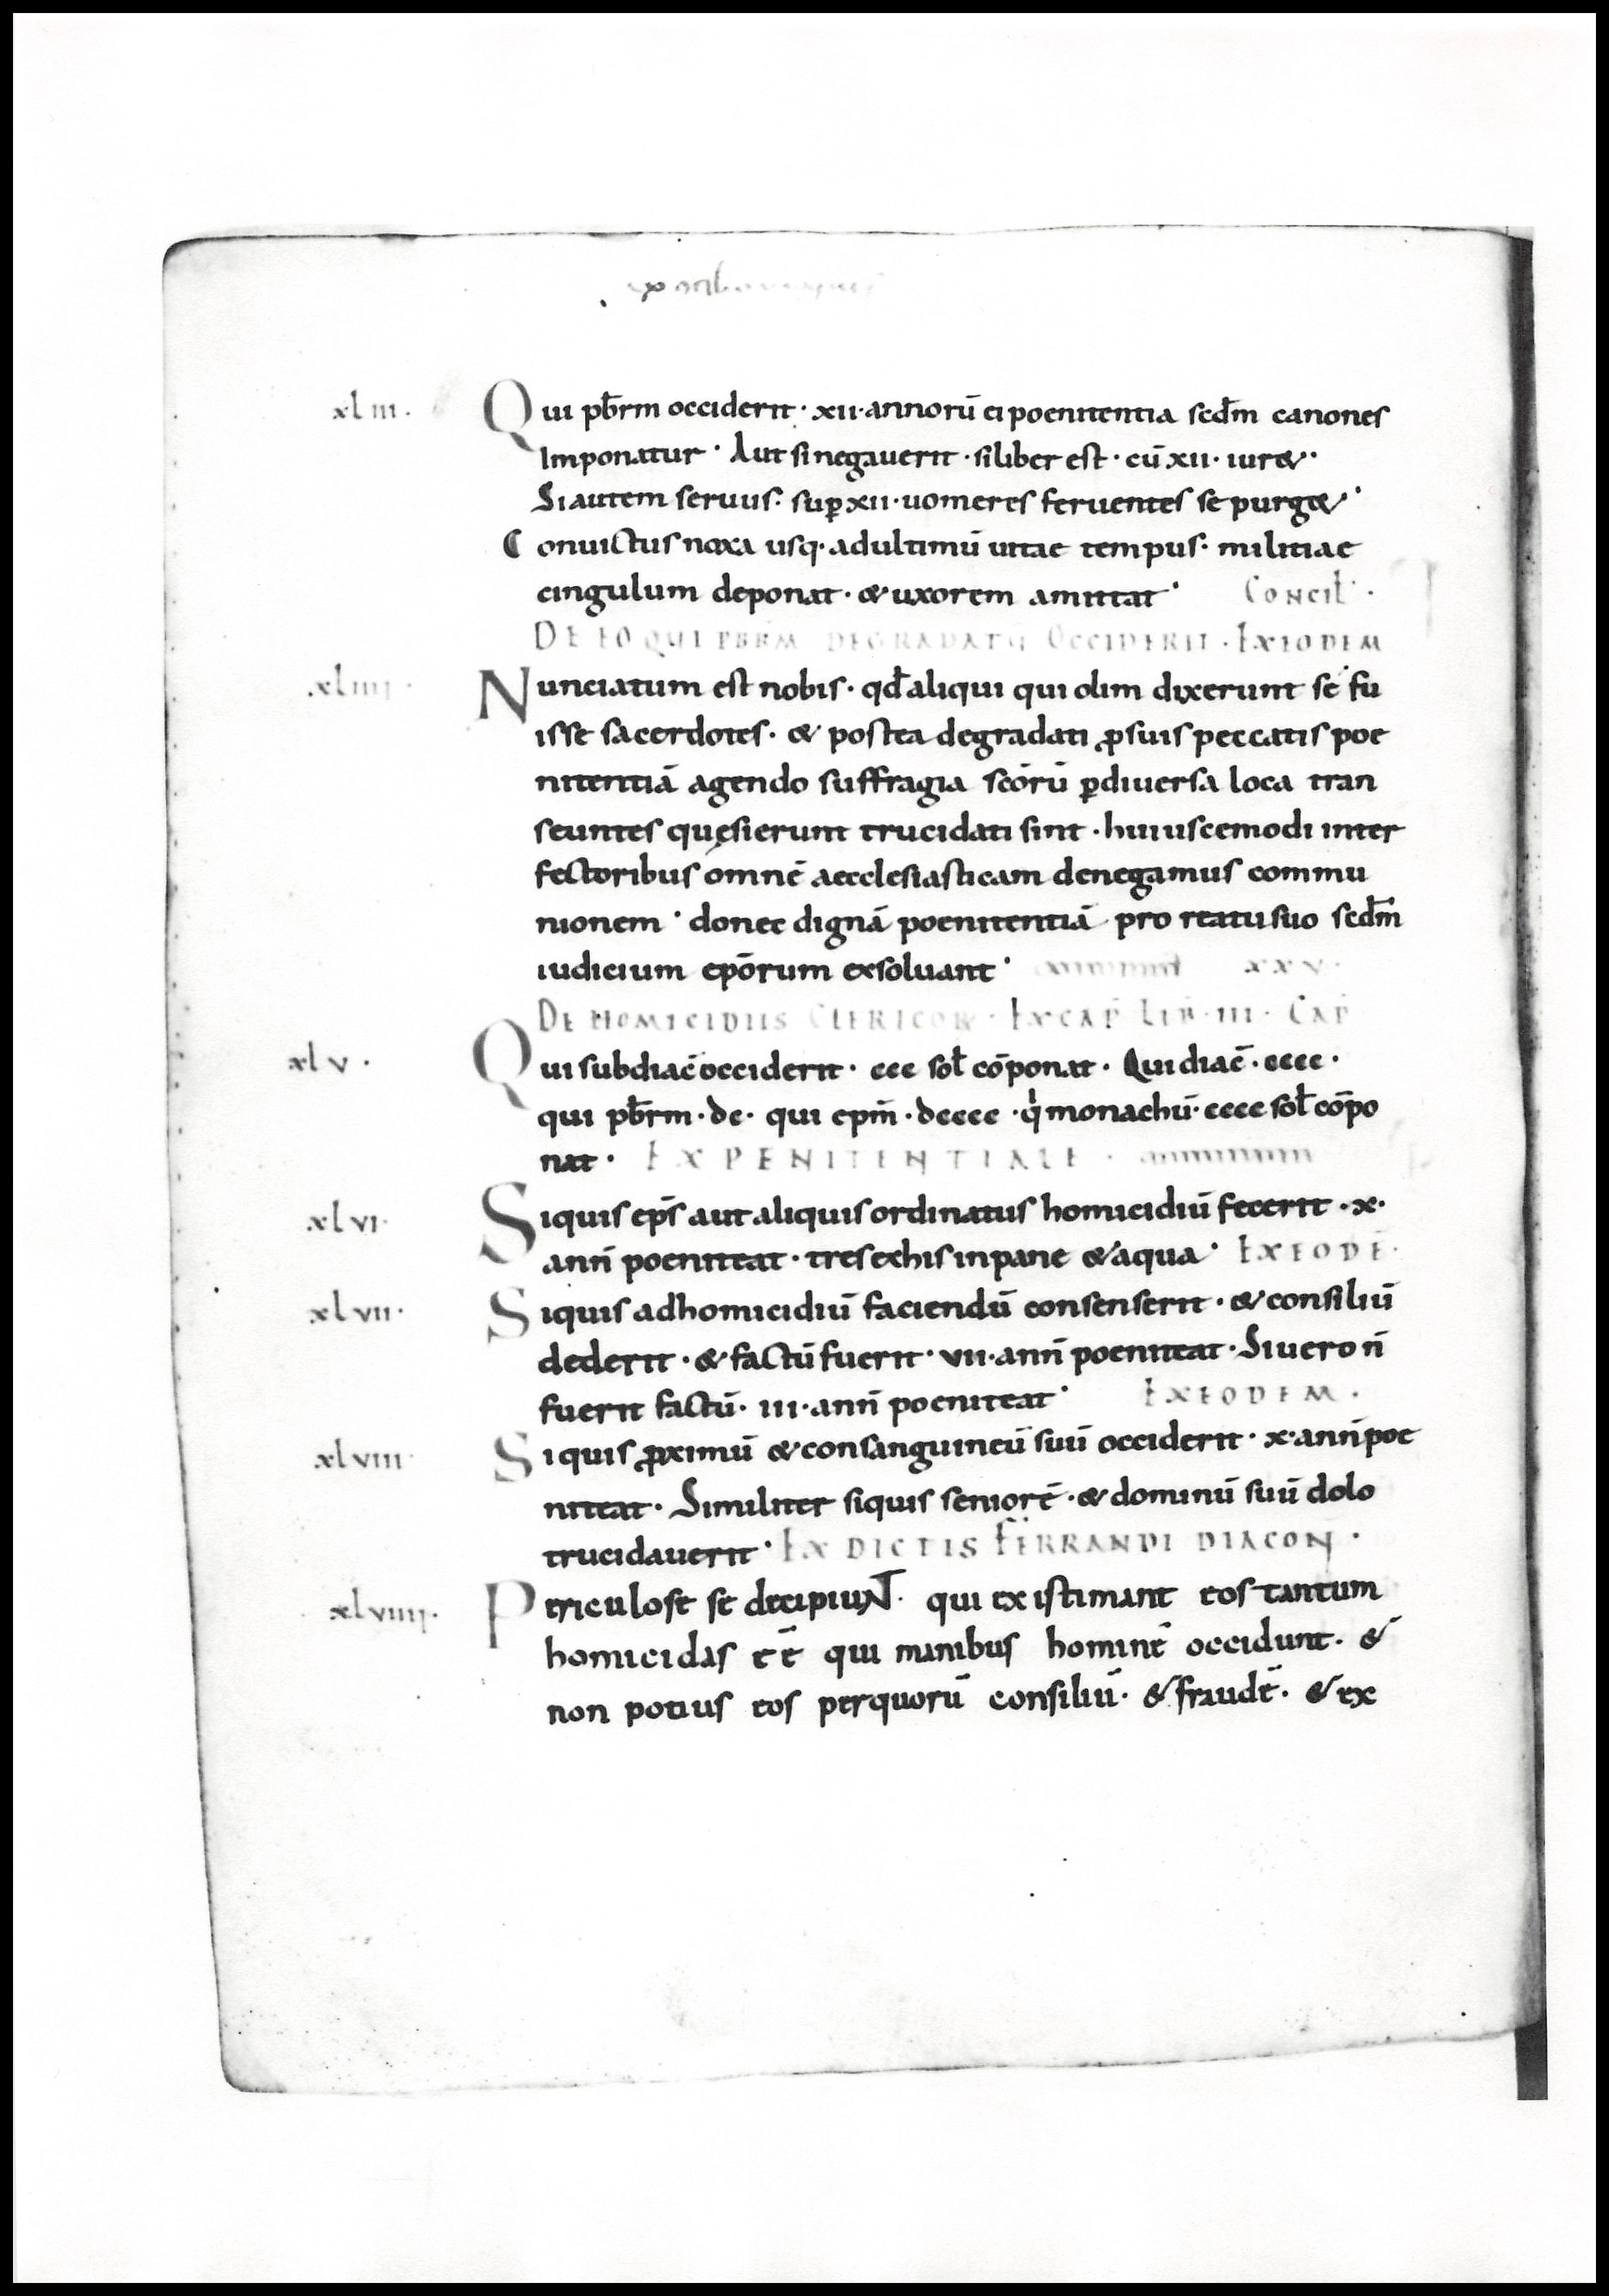 xliii. Qui pb̄rm occiderit · xii · annorū ei poenitentia scd̄m canones
Imponatur · Aut si negauerit · si liber est · cū xii · iur&·
Si autem seruus · sup̄ xii · uomeres feruentes se purg&·
Conuictus noxa usq· ad ultimū uitae tempus · militiae
cingulum deponat · & uxorem amittat · CONCIL̄ ·
DE EO QUI PBRM DEGRADATŪ OCCIDERIT · EX EODEM
xliiii · Nunciatum est nobis · qd̄ aliqui qui olim dixerunt se fu
isse sacerdotes · & postea degradati ꝓ suis peccatis poe
nitentiā agendo suffragia scōrū ꝑ diuersa loca tran
seuntes quęsierunt trucidati sint · huiuscemodi inter
fectoribus omnē aecclesiasticam denegamus commu
nionem · donec dignā poenitentiā pro reatu suo scd̄m
iudicium epōrum exsoluant · xxv ·
DE HOMICIDIIS CLERICOR · EX CAP̄ LIB · III · CAP̄
xlv · Qui subdiac̄ occiderit · ccc sol̄ cōponat · Qui diac̄ · cccc ·
qui pb̄rm · dc · qui epm̄ · dcccc · qi monachū · cccc sol̄ cōpo
nat · EX PENITENTIALE ·
xlvi · Si quis ep̄s aut aliquis ordinatus homicidiū fecerit · x ·
ann̄ poeniteat · tres ex his in pane & aqua · EX EODĒ ·
xlvii · Si quis ad homicidiū faciendū consenserit · & consiliū
dederit · & factū fuerit · vii · ann̄ poeniteat · Si uero n̄
fuerit factū · iii · ann̄ poeniteat · EX EODEM ·
xlviii · Si quis ꝓximū & consanguineū suū occiderit · x · ann̄ poe
niteat · Similiter si quis seniorē · & dominū suū dolo
trucidauerit · EX DICTIS FERRANDI DIACON̄ ·
xlviiii · Periculose se decipiuNT · qui existimant eos tantum
homicidas eē qui manibus hominē occidunt · &
non potius eos per quorū consiliū · & fraudē · & ex